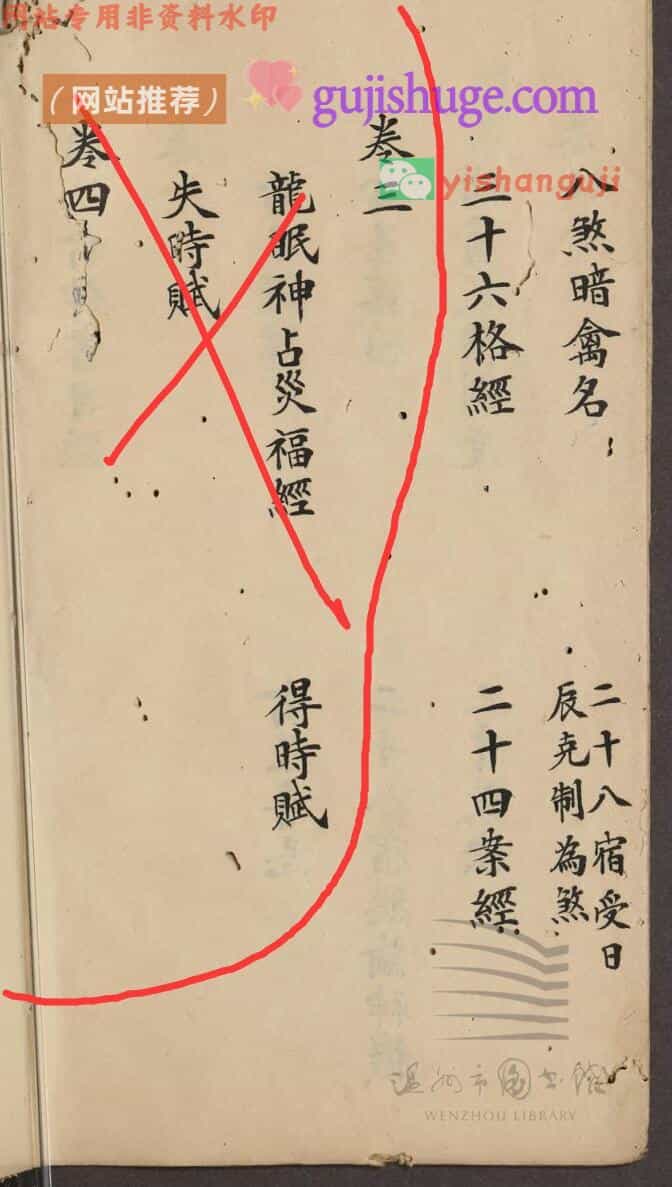 网站专用非资料水印
(网站推荐)
gujishuge.com
yishanguji
八煞暗禽名
二十八宿受日
辰克制為煞
三十六格經
二十四案經
卷三
龍眠神占災福經
得時賦
失時賦
卷四
温州市图书馆
WENZHOU LIBRARY